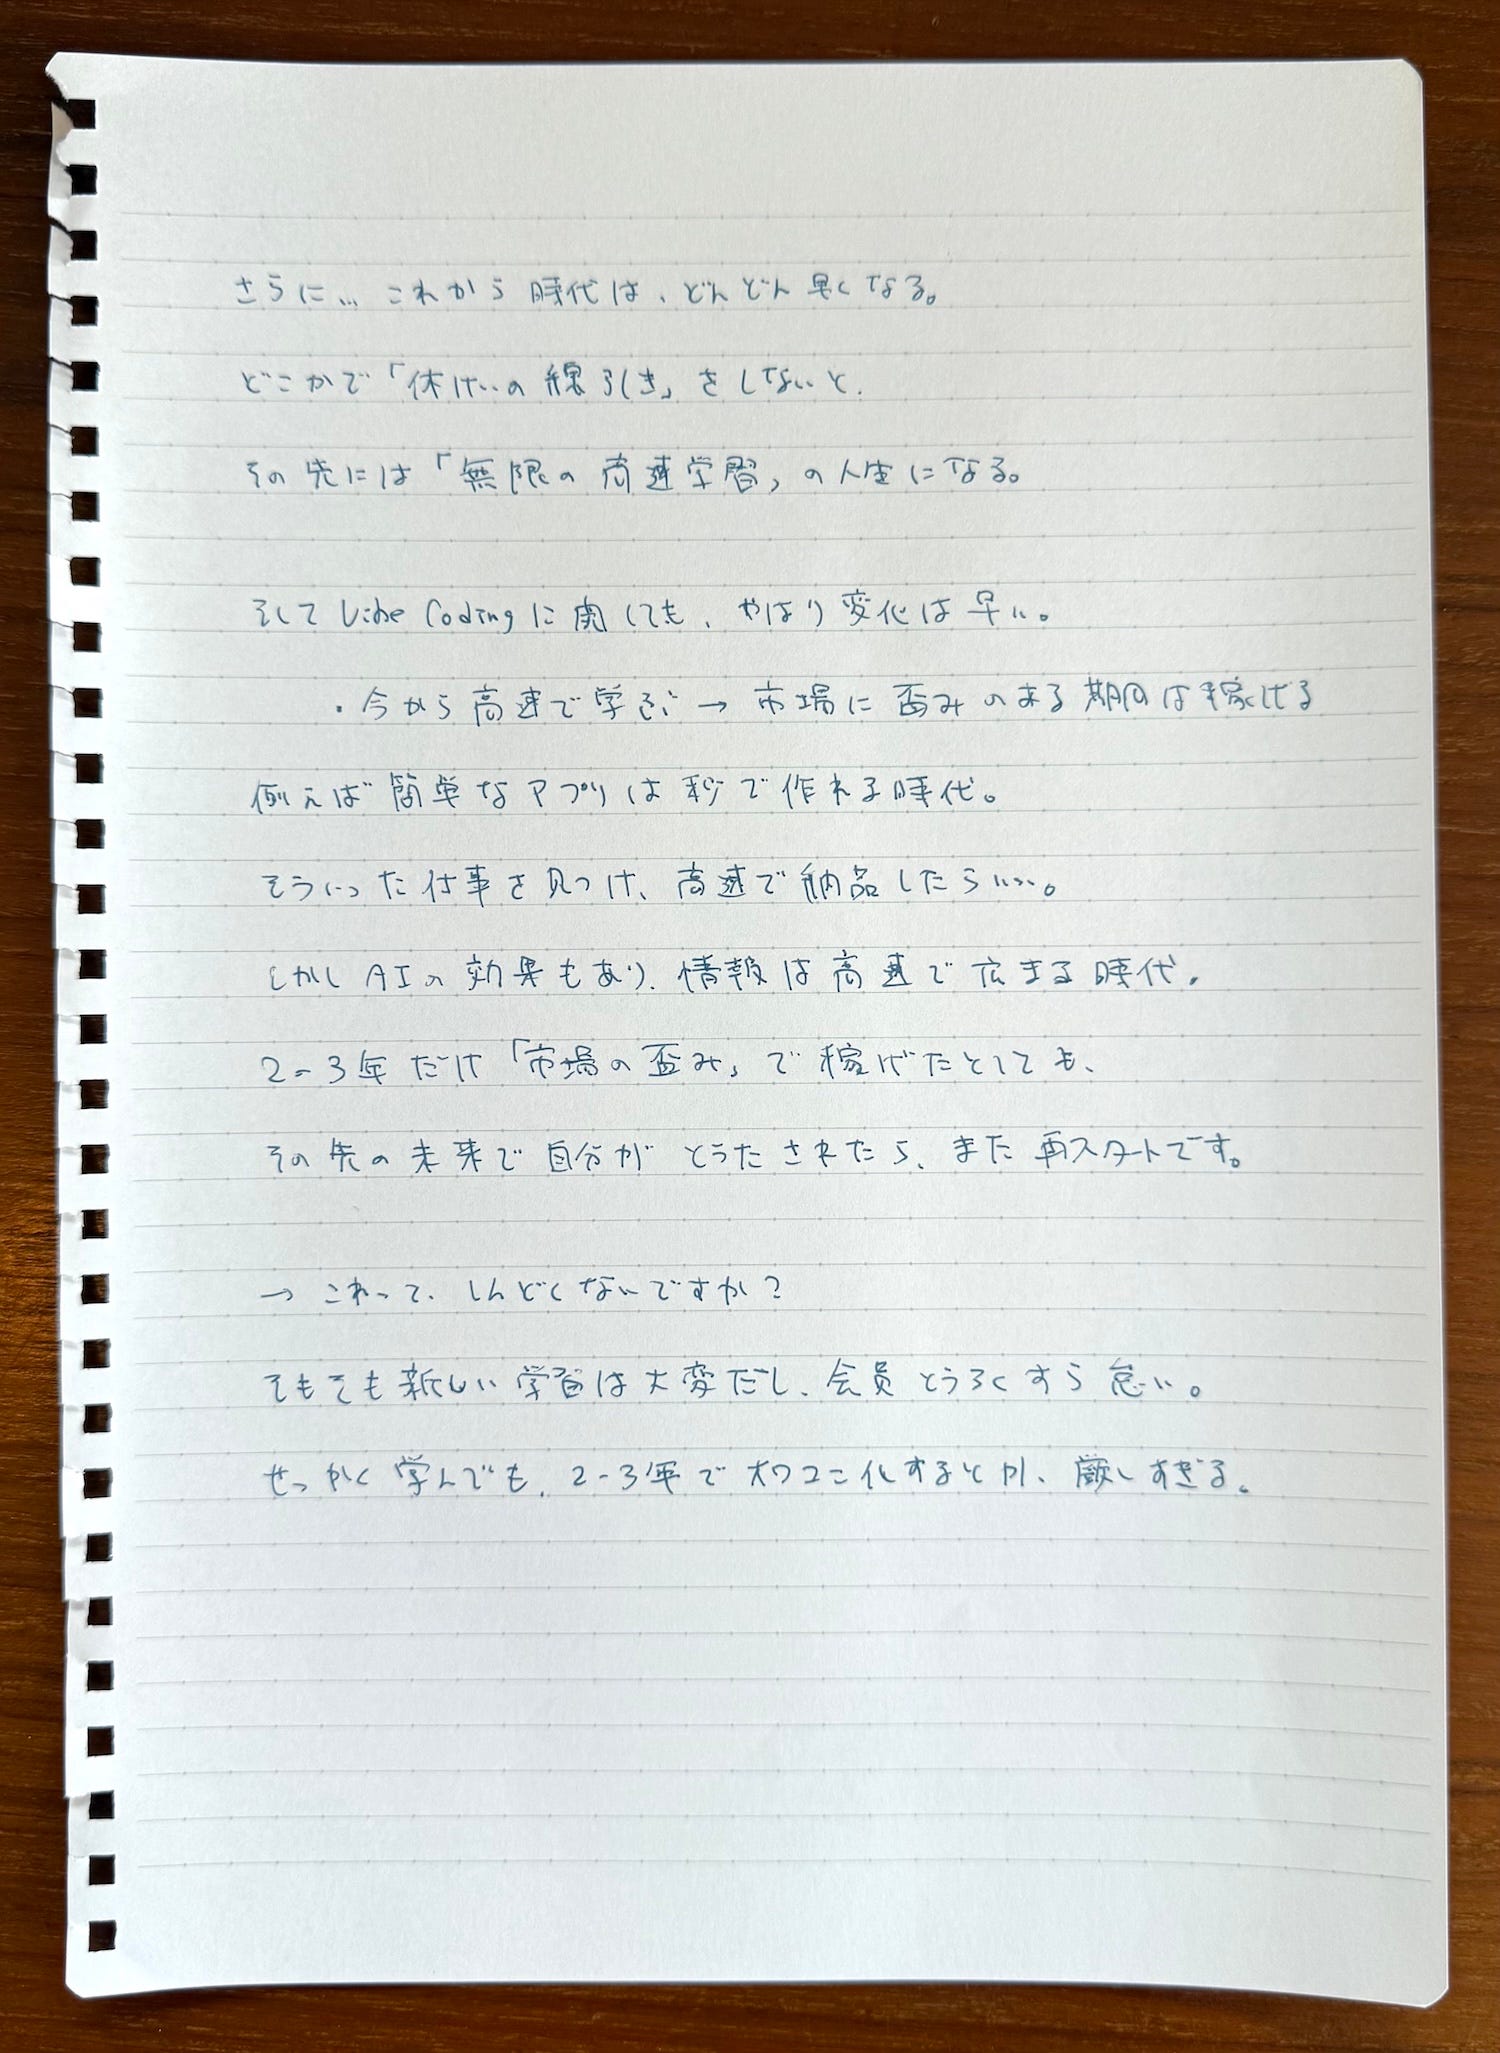 さらに… これから時代は、どんどん早くなる。
どこかで「休けいの線引き」をしないと、
その先には「無限の高速学習」の人生になる。
そして Vibe Codingに関しても、やはり変化は早い。
・今から高速で学ぶ → 市場に歪みのある期間は稼げる
例えば簡単なアプリは秒で作れる時代。
そういった仕事を見つけ、高速で納品したらいい。
しかしAIの効果もあり、情報は高速で広まる時代。
2-3年だけ「市場の歪み」で稼げたとしても、
その先の未来で自分がとうたされたら、また再スタートです。
→ これって、しんどくないですか?
そもそも新しい学習は大変だし、会員とうろくすら怠い。
せっかく学んでも、2-3年でオワコン化するとか、厳しすぎる。